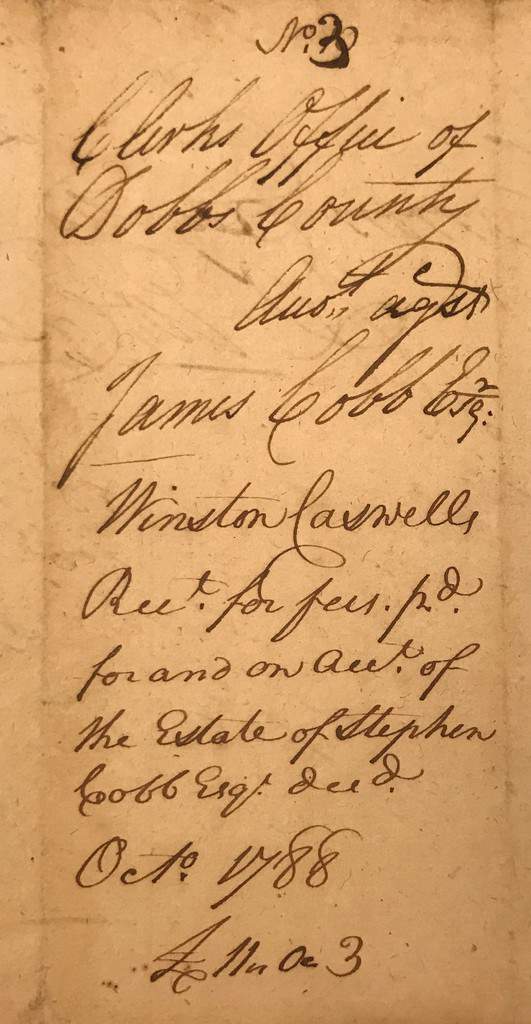 No. 3
Clerks Office of
Dobbs County
Acot. agst
James Cobb Esqr.
Winston Caswells
Rect. for fees. pd.
for and on Acct. of
the Estate of Stephen
Cobb Esqr. decd.
Octo. 1788
£ 11 3